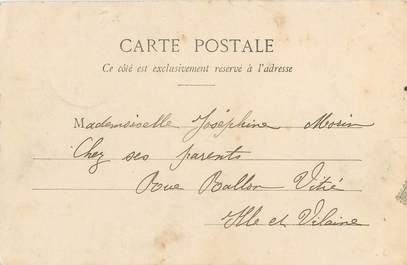 CARTE POSTALE
Ce côté est exclusivement réservé à l'adresse
Mademoiselle Joséphine Morin
Chez ses parents
Rue Ballon Vitré
Ille et Vilaine